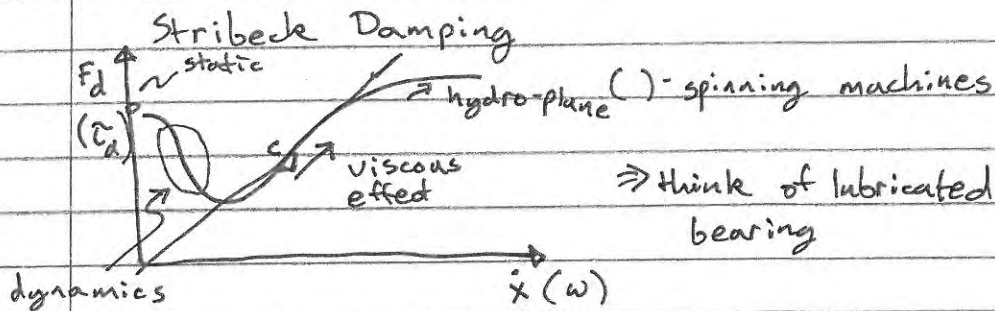 Stribeck Damping
F_d
static
(τ_d)
hydro-plane
( ) - spinning machines
c
viscous
effect
⇒ think of lubricated
bearing
dynamics
ẋ (ω)